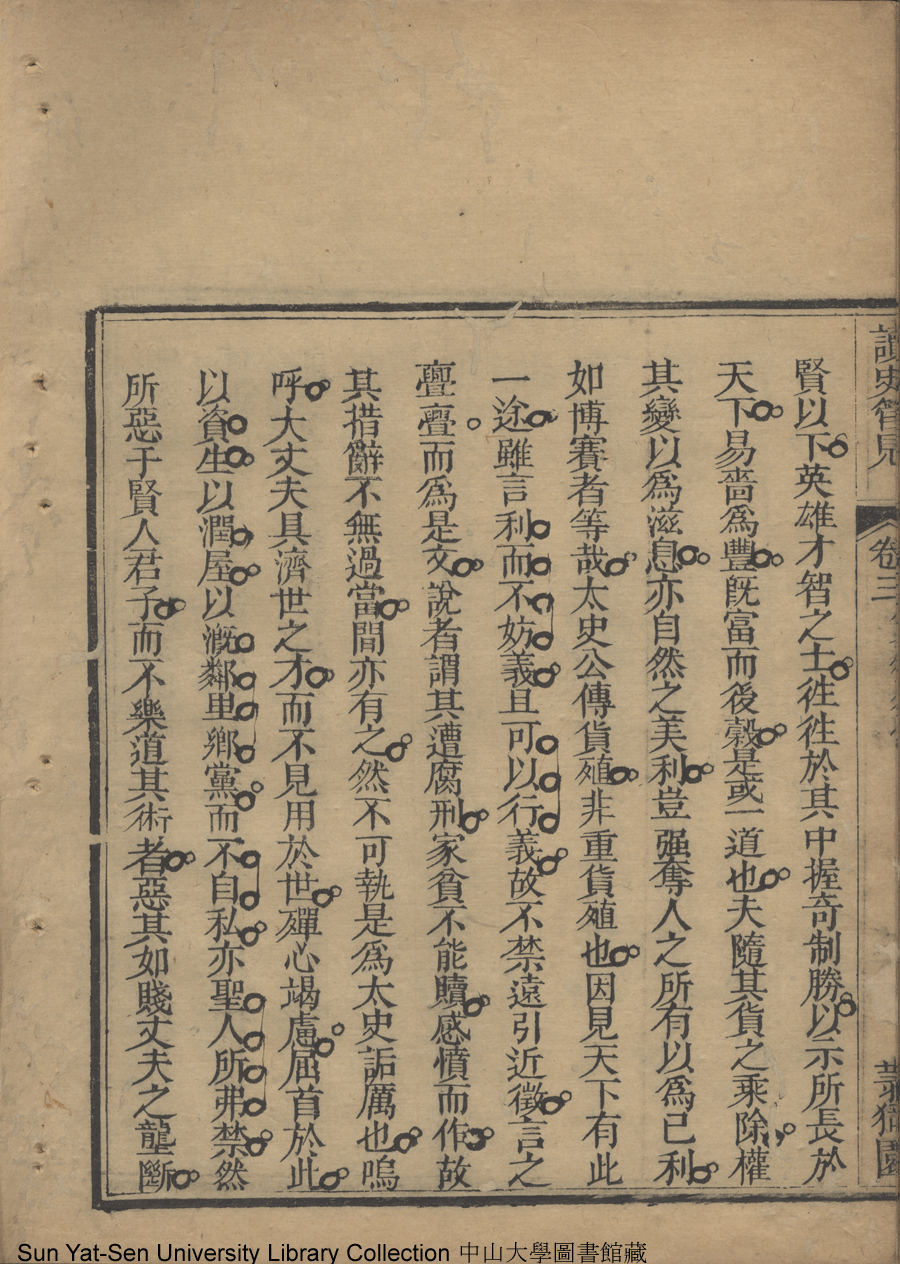 讀史管見
卷三
賢以下英雄才智之士徃徃於其中握奇制勝以示所長於
天下易嗇爲豐旣富而後穀是或一道也夫隨其貨之乘除權
其變以爲滋息亦自然之美利豈强奪人之所有以爲已利
如博賽者等哉太史公傳貨殖非重貨殖也因見天下有此
一途雖言利而不妨義且可以行義故不禁遠引近徵言之
亹亹而爲是文說者謂其遭腐刑家貧不能贖感憤而作故
其措辭不無過當間亦有之然不可執是爲太史詬厲也嗚
呼大丈夫具濟世之才而不見用於世殫心竭慮屈首於此
以資生以潤屋以漑鄰里鄉黨而不自私亦聖人所弗禁然
所惡于賢人君子而不樂道其術者惡其如賤丈夫之龍斷
Sun Yat-Sen University Library Collection 中山大學圖書館藏